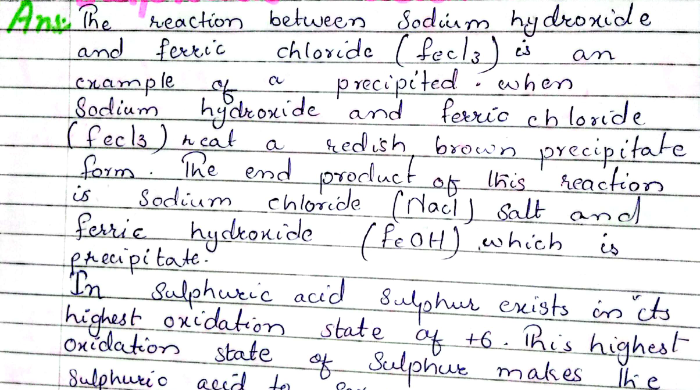 Ans: The reaction between Sodium hydroxide
and ferric chloride (fecl3) is an
example of a precipited. when
Sodium hydroxide and ferric chloride
(fecl3) reat a redish brown precipitate
form. The end product of this reaction
is Sodium chloride (Nacl) salt and
ferric hydroxide (feOH) which is
precipitate.
In Sulphuric acid Sulphur exists in its
highest oxidation state of +6. This highest
oxidation state of Sulphur makes the
Sulphuric acid to